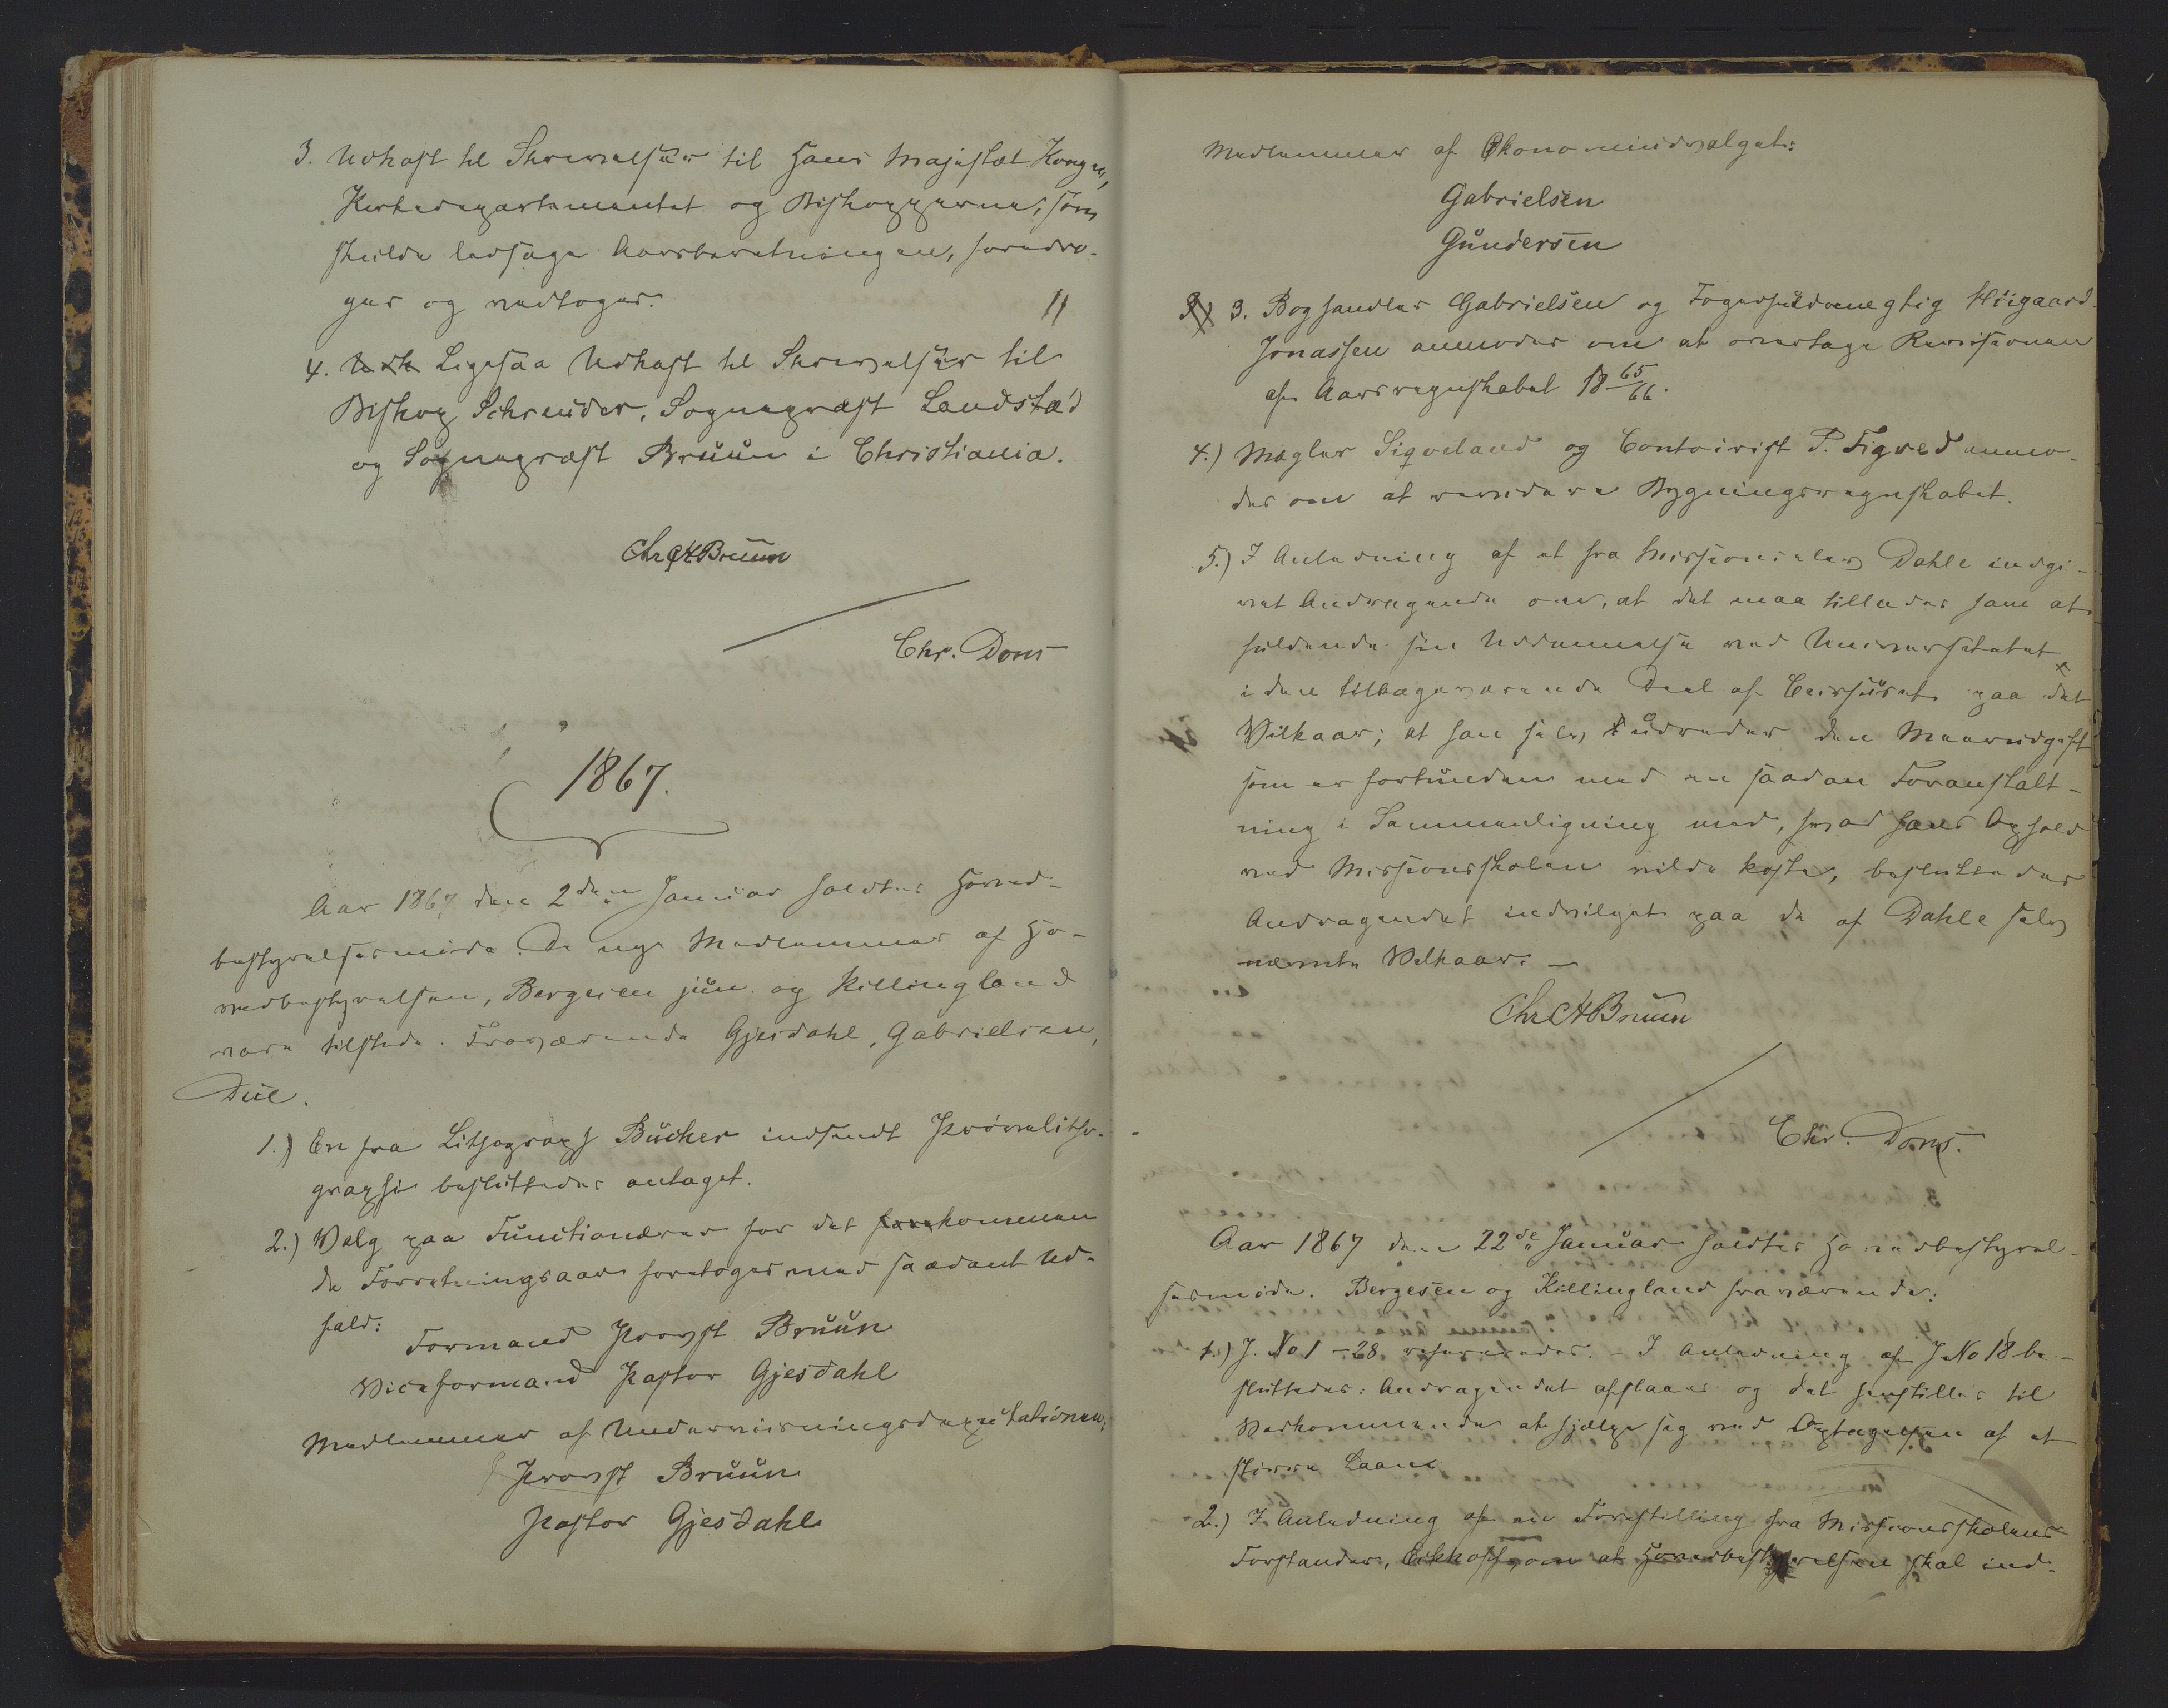 3. Udkast til Skrivelser til Hans Majestæt Kongen,
Kirkedepartementet og Biskopperne, som
skulde ledsage Aarsberetningen, foredro-
ges og vedtoges.
4. Ligesaa Udkast til Skrivelser til
Biskop Schreuder, Sognepræst Landstad
og Sognepræst Bruun i Christiania.
Chr A Bruun
Chr. Dons
1867.
Aar 1867 den 2den Januar holdtes Hoved-
bestyrelsesmøde. De nye Medlemmer af Ho-
vedbestyrelsen, Bergesen jun. og Killingland
vare tilstede. Fraværende Gjesdahl, Gabrielsen,
Due.
1.) En fra Lithograph Bucher indsendt Prøvelitho-
graphi besluttedes antaget.
2.) Valg paa Functionærer for det kommen
de Forretningsaar foretoges med saadant Ud-
fald:
Formand Provst Bruun
Viceformand Pastor Gjesdahl
Medlemmer af Undervisningsdeputationen:
Provst Bruun
Pastor Gjesdahl
Medlemmer af Økonomiudvalget:
Gabrielsen
Gundersen
3. Boghandler Gabrielsen og Høigaard
Jonassen anmodes om at overtage Revisionen
af Aarsregnskabet 18 65/66.
4.) Mægler Siqveland og Contoirist P. Sigved anmo-
des om at revidere Bygningsregnskabet.
5.) I Anledning af et fra Missionselev Dahle indgi-
vet Andragende om, at det maa tillades ham at
fuldende sin Uddannelse ved Universitetet
i den tilbageværende Deel af Curset paa det
Vilkaar, at han selv udreder den Meerudgift
som er forbunden med en saadan Foranstalt-
ning i Sammenligning med, hvad hans Ophold
ved Missionsskolen vilde koste, besluttedes
Andragendet indvilget paa de af Dahle selv
nævnte Vilkaar. —
Chr A Bruun
Chr. Dons.
Aar 1867 den 22de Januar holdtes Hovedbestyrel-
sesmøde. Bergesen og Killingland fraværende.
1.) J. No 1 – 28 refereredes. – I Anledning af J No 18 be-
sluttedes: Andragendet afslaaes og det henstilles til
Vedkommende at hjælpe sig ved Optagelsen af et
større Laan.
2.) I Anledning af en Forestilling fra Missionsskolens
Forstander, Eckhoff, om at Hovedbestyrelsen skal ind-